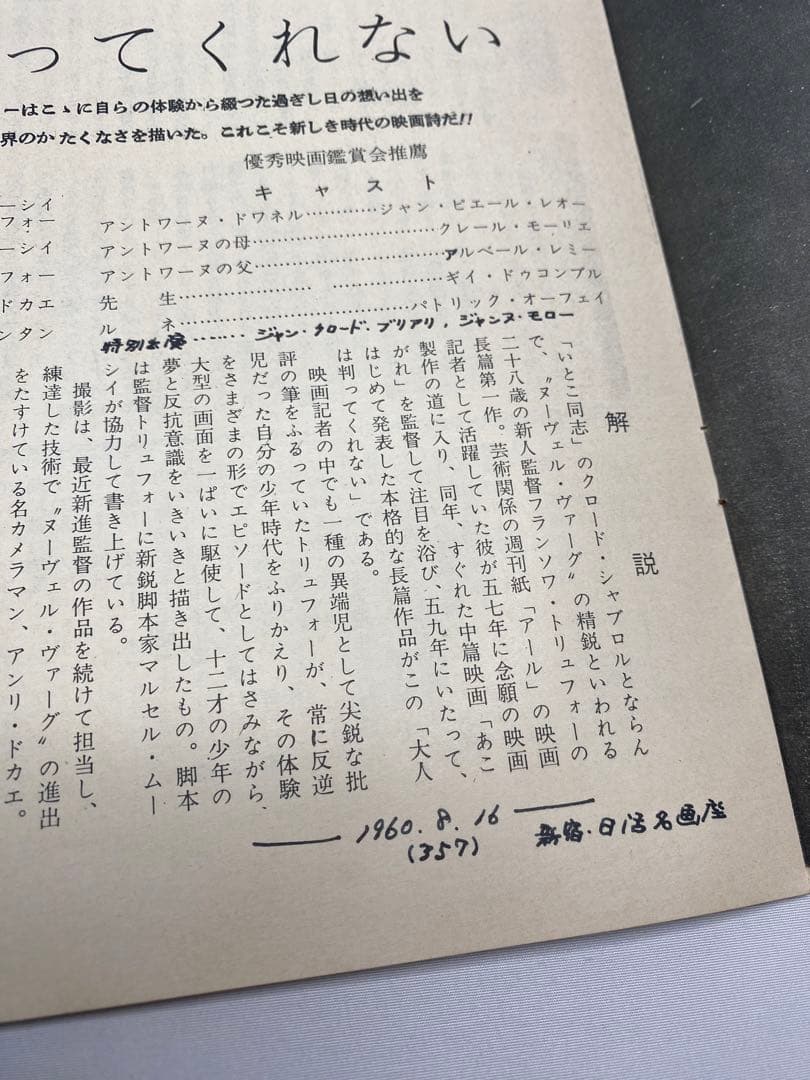 ってくれない
ーはこゝに自らの体験から綴つた過ぎし日の想い出を
界のかたくなさを描いた。これこそ新しき時代の映画詩だ!!
優秀映画鑑賞会推薦
キャスト
アントワーヌ・ドワネル…………ジャン・ピエール・レオー
アントワーヌの母………………………クレール・モーリェ
アントワーヌの父………………………アルベール・レミー
先生…………… ……………ギイ・ドゥコンブル
ルネ………………………パトリック・オーフェイ
特別出演……ジャン・クロード・ブリアリ，ジャンヌ・モロー
ーシイ
フォー
ーシイ
フォー
ドカエ
ンタン
解説
「いとこ同志」のクロード・シャブロルとならん
で、〝ヌーヴェル・ヴァーグ〟の精鋭といわれる
二十八歳の新人監督フランソワ・トリュフォーの
長篇第一作。芸術関係の週刊紙「アール」の映画
記者として活躍していた彼が五七年に念願の映画
製作の道に入り、同年、すぐれた中篇映画「あこ
がれ」を監督して注目を浴び、五九年にいたって、
はじめて発表した本格的な長篇作品がこの「大人
は判ってくれない」である。
映画記者の中でも一種の異端児として尖鋭な批
評の筆をふるっていたトリュフォーが、常に反逆
児だった自分の少年時代をふりかえり、その体験
をさまざまの形でエピソードとしてはさみながら、
大型の画面を一ぱいに駆使して、十二才の少年の
夢と反抗意識をいきいきと描き出したもの。脚本
は監督トリュフォーに新鋭脚本家マルセル・ムー
シイが協力して書き上げている。
撮影は、最近新進監督の作品を続けて担当し、
練達した技術で〝ヌーヴェル・ヴァーグ〟の進出
をたすけている名カメラマン、アンリ・ドカエ。
1960.8.16
(357)
新宿・日活名画座